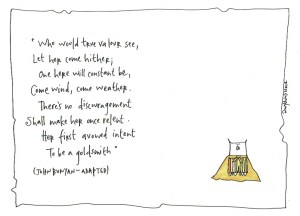 "Who would true valour see,
Let her come hither;
One here will constant be,
Come wind, come weather.
There's no discouragement
Shall make her once relent.
Her first avowed intent
To be a goldsmith"
(JOHN BUNYAN - ADAPTED)